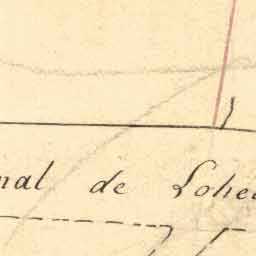 nal de Lohe